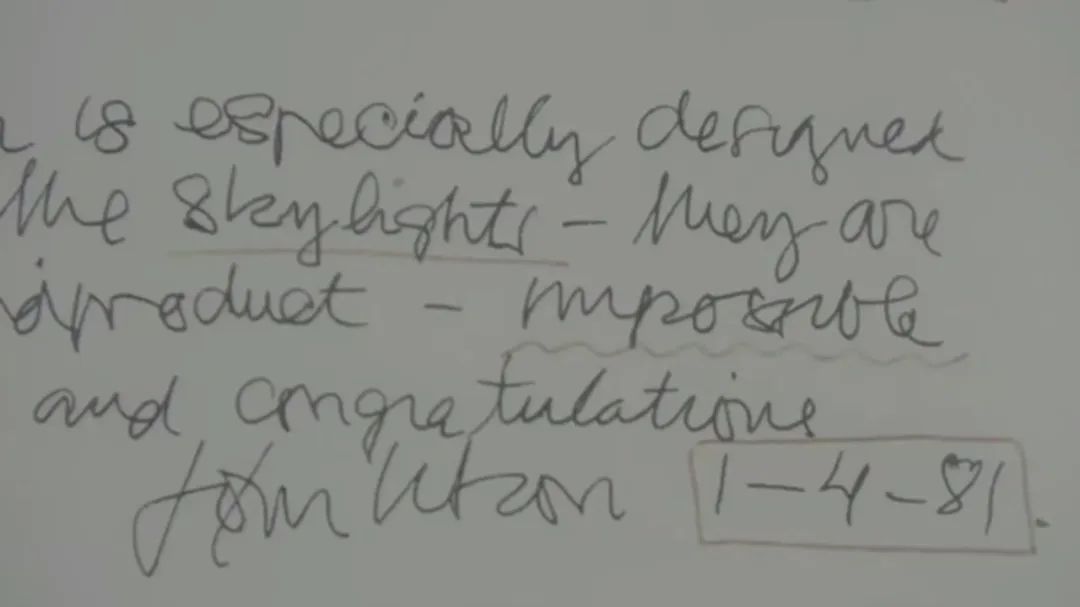 is especially designed
the skylights – they are
product – impossible
and congratulations
Jørn Utzon 1-4-81.